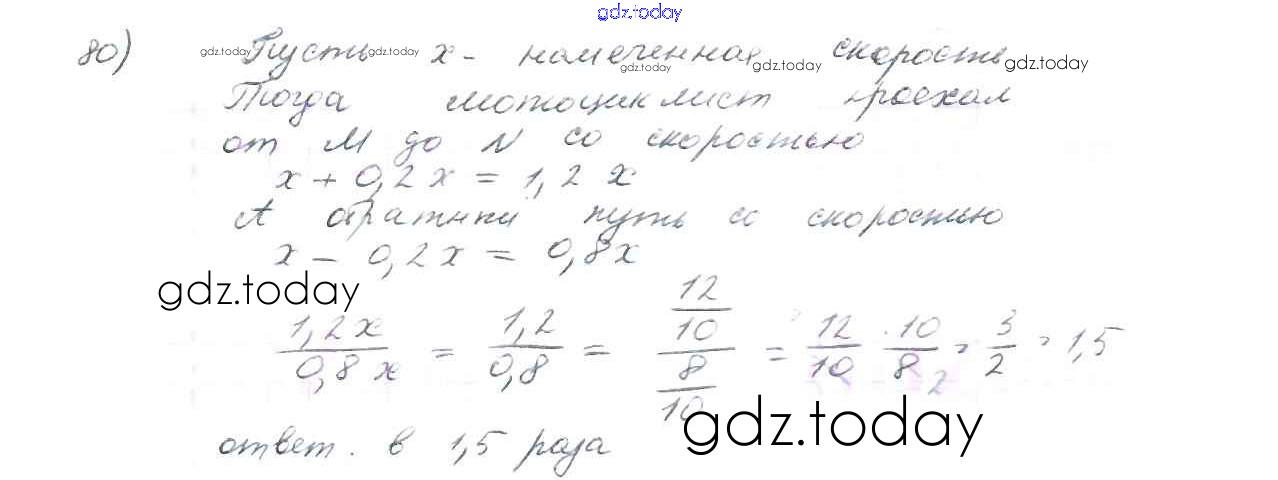 gdz.today
80) gdz.today Пусть gdz.today x - намеченная скорость
gdz.today gdz.today gdz.today
Тогда мотоциклист проехал
от M до N со скоростью
x + 0,2x = 1,2x
А обратный путь со скоростью
x - 0,2x = 0,8x
gdz.today
1,2x/0,8x = 1,2/0,8 = 12/10 / 8/10 = 12/10 · 10/8 2 = 3/2 = 1,5
gdz.today
ответ. в 1,5 раза